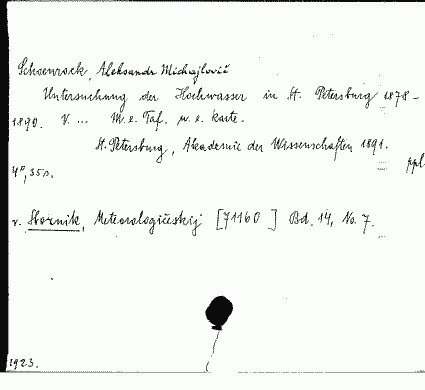 Schoenrock, Aleksandr Michajlovič
Untersuchung der Hochwasser in St. Petersburg 1878-
1890. V. ... M. e. Taf. u. e. Karte.
St. Petersburg, Akademie der Wissenschaften 1891.
ppl
4°, 35 s.
v. Sbornik, Meteorologičeskij [71160 ] Bd. 14, No. 7.
1923.